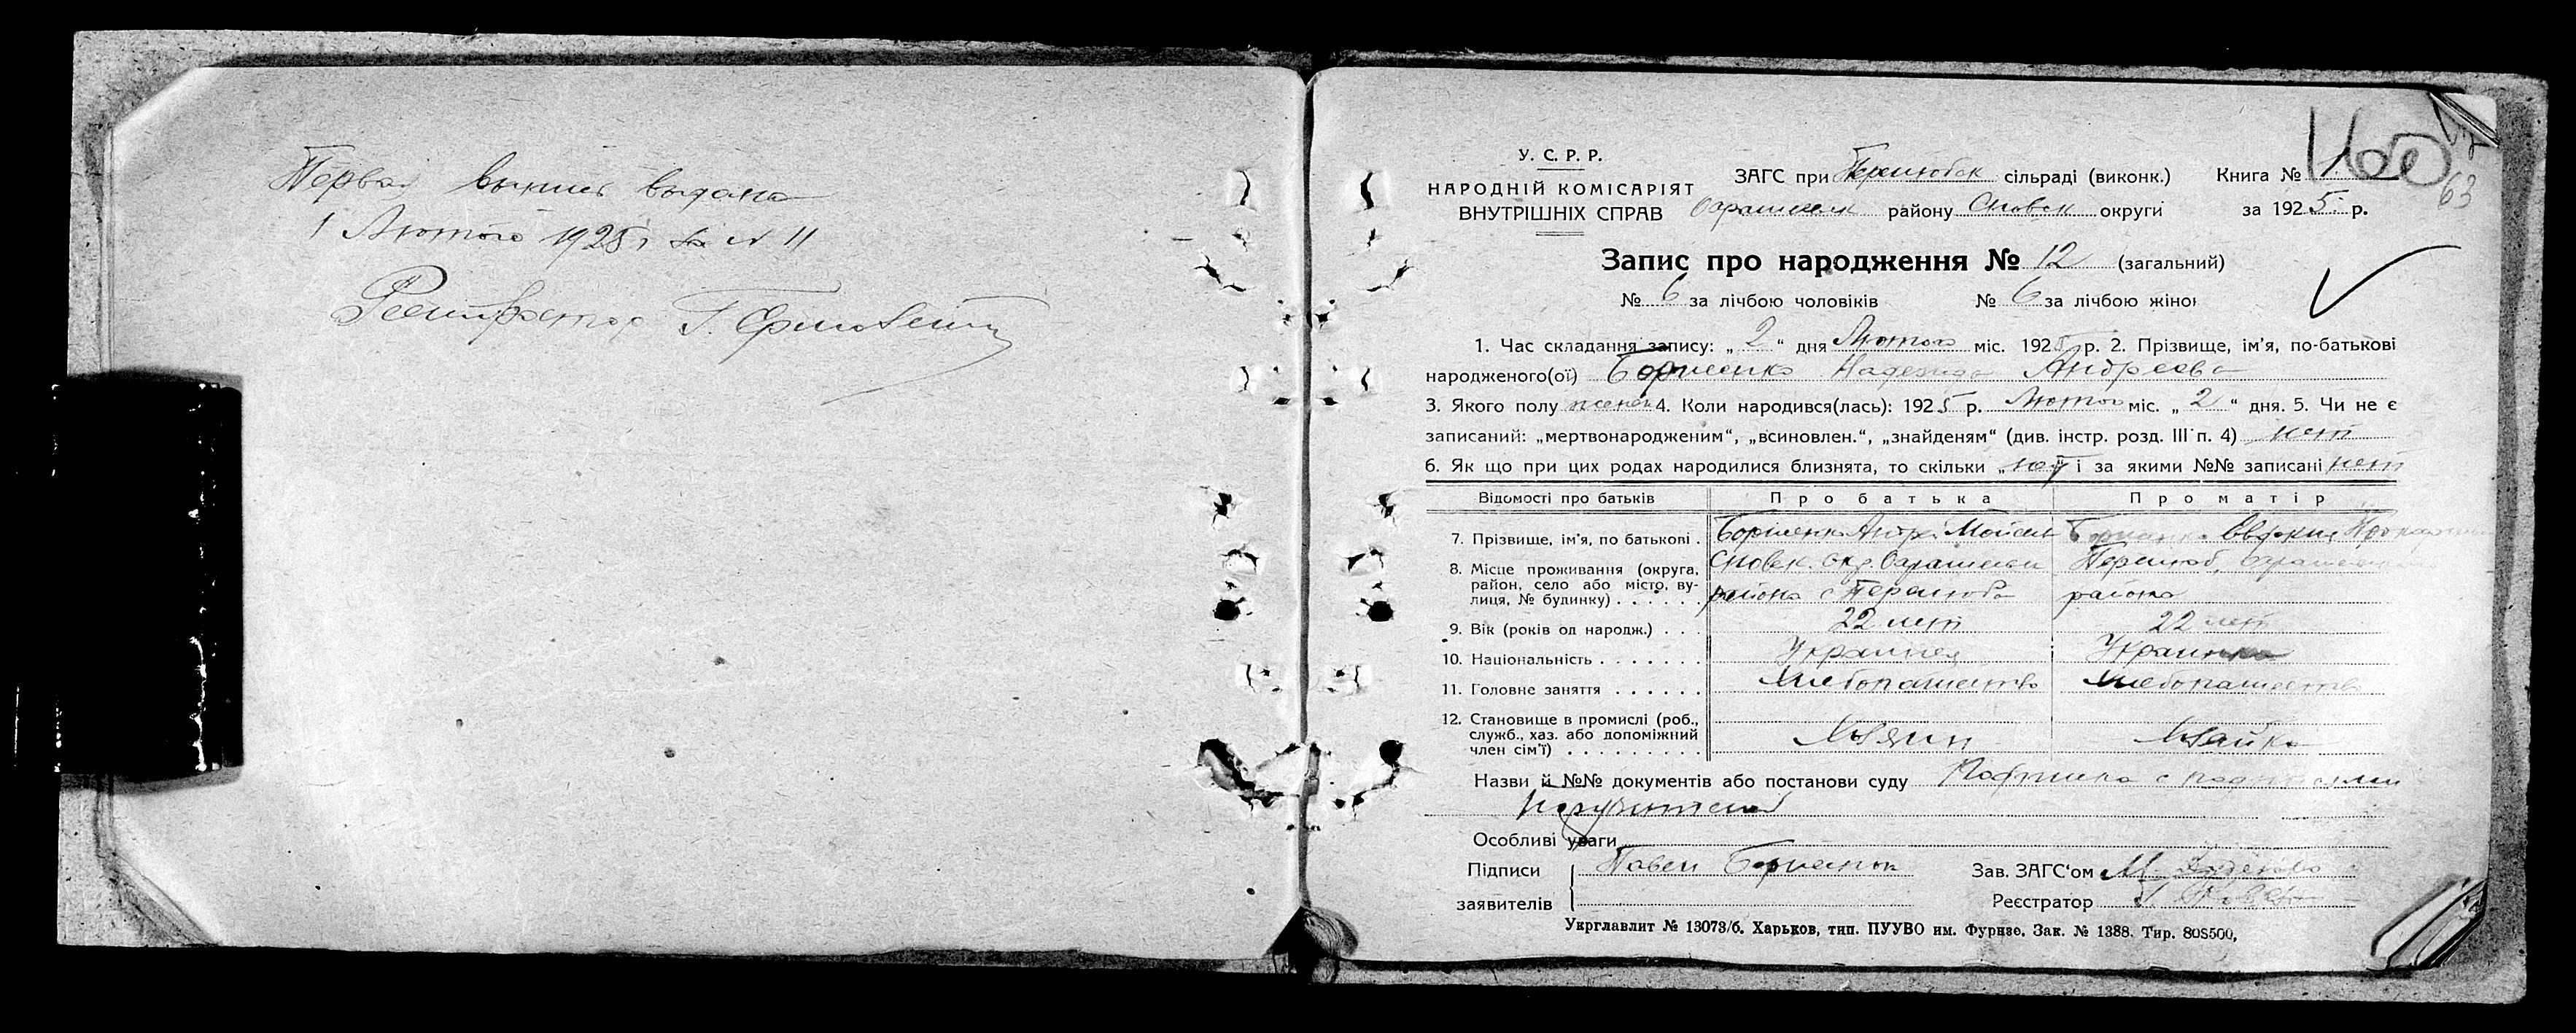 Первая выпись выдана
1 Лютого 1925 г за № 11
Г.
У. С. Р. Р.
НАРОДНІЙ КОМІСАРІЯТ
ВНУТРІШНІХ СПРАВ
ЗАГС при Перелюбск сільраді (виконк.)
району Сновск округи
Книга № 1
за 1925 р.
63
Запис про народження № 12 (загальний)
№ 6 за лічбою чоловіків № 6 за лічбою жінок
1. Час складання запису: „ 2 “ дня Лютого міс. 1925 р. 2. Прізвище, ім’я, по-батькові
народженого(ої) Борисенко Надежда Андреева
3. Якого полу женск 4. Коли народився(лась): 1925 р. Лютого міс. „ 2 “ дня. 5. Чи не є
записаний: „мертвонародженим“, „всиновлен.“, „знайденям“ (див. інстр. розд. III п. 4) нет
6. Як що при цих родах народилися близнята, то скільки „ “ і за якими №№ записані нет
Відомості про батьків Про батька Про матір
7. Прізвище, ім’я, по батькові . Борисенко Андрей Мойсеев Борисенко Евдокия
8. Місце проживання (округа, Сновск. окр. Перелюб,
район, село або місто, ву- района с Перелюба района
лиця, № будинку) . . . . . .
9. Вік (років од народж.) . . . 22 лет 22 лет
10. Національність . . . . . . . Украинец Украинка
11. Головне заняття . . . . . . Хлебопашество Хлебопашество
12. Становище в промислі (роб.,
служб., хаз. або допоміжний
член сім’ї) . . . . . . . . .
Назви й №№ документів або постанови суду с подписями
Особливі уваги
Підписи Павел Борисенок Зав. ЗАГС‘ом М.
заявителів Реєстратор Г.
Укрглавлит № 13073/б. Харьков, тип. ПУУВО им. Фрунзе. Зак. № 1388. Тир. 808500,